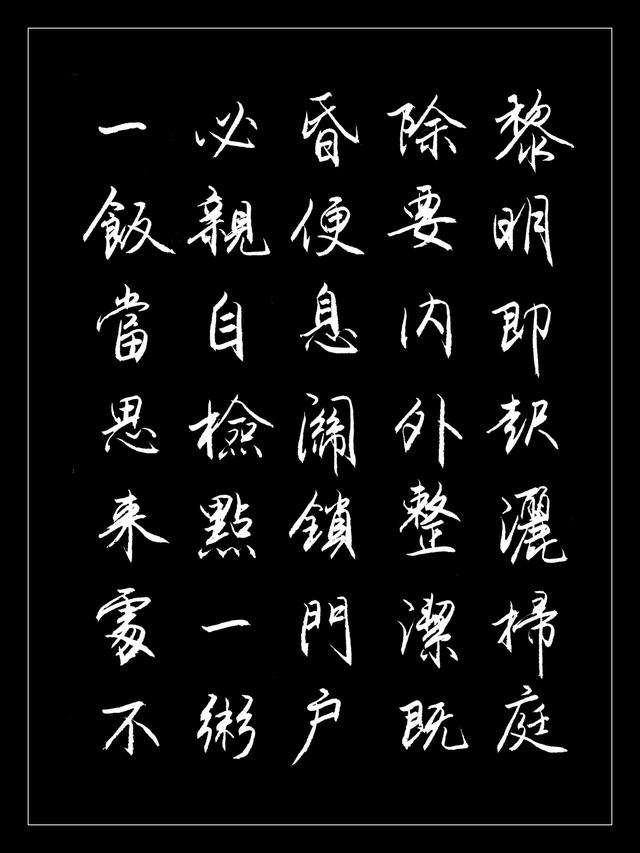 黎明即起灑掃庭
除要內外整潔既
昏便息關鎖門戶
必親自檢點一粥
一飯當思來處不